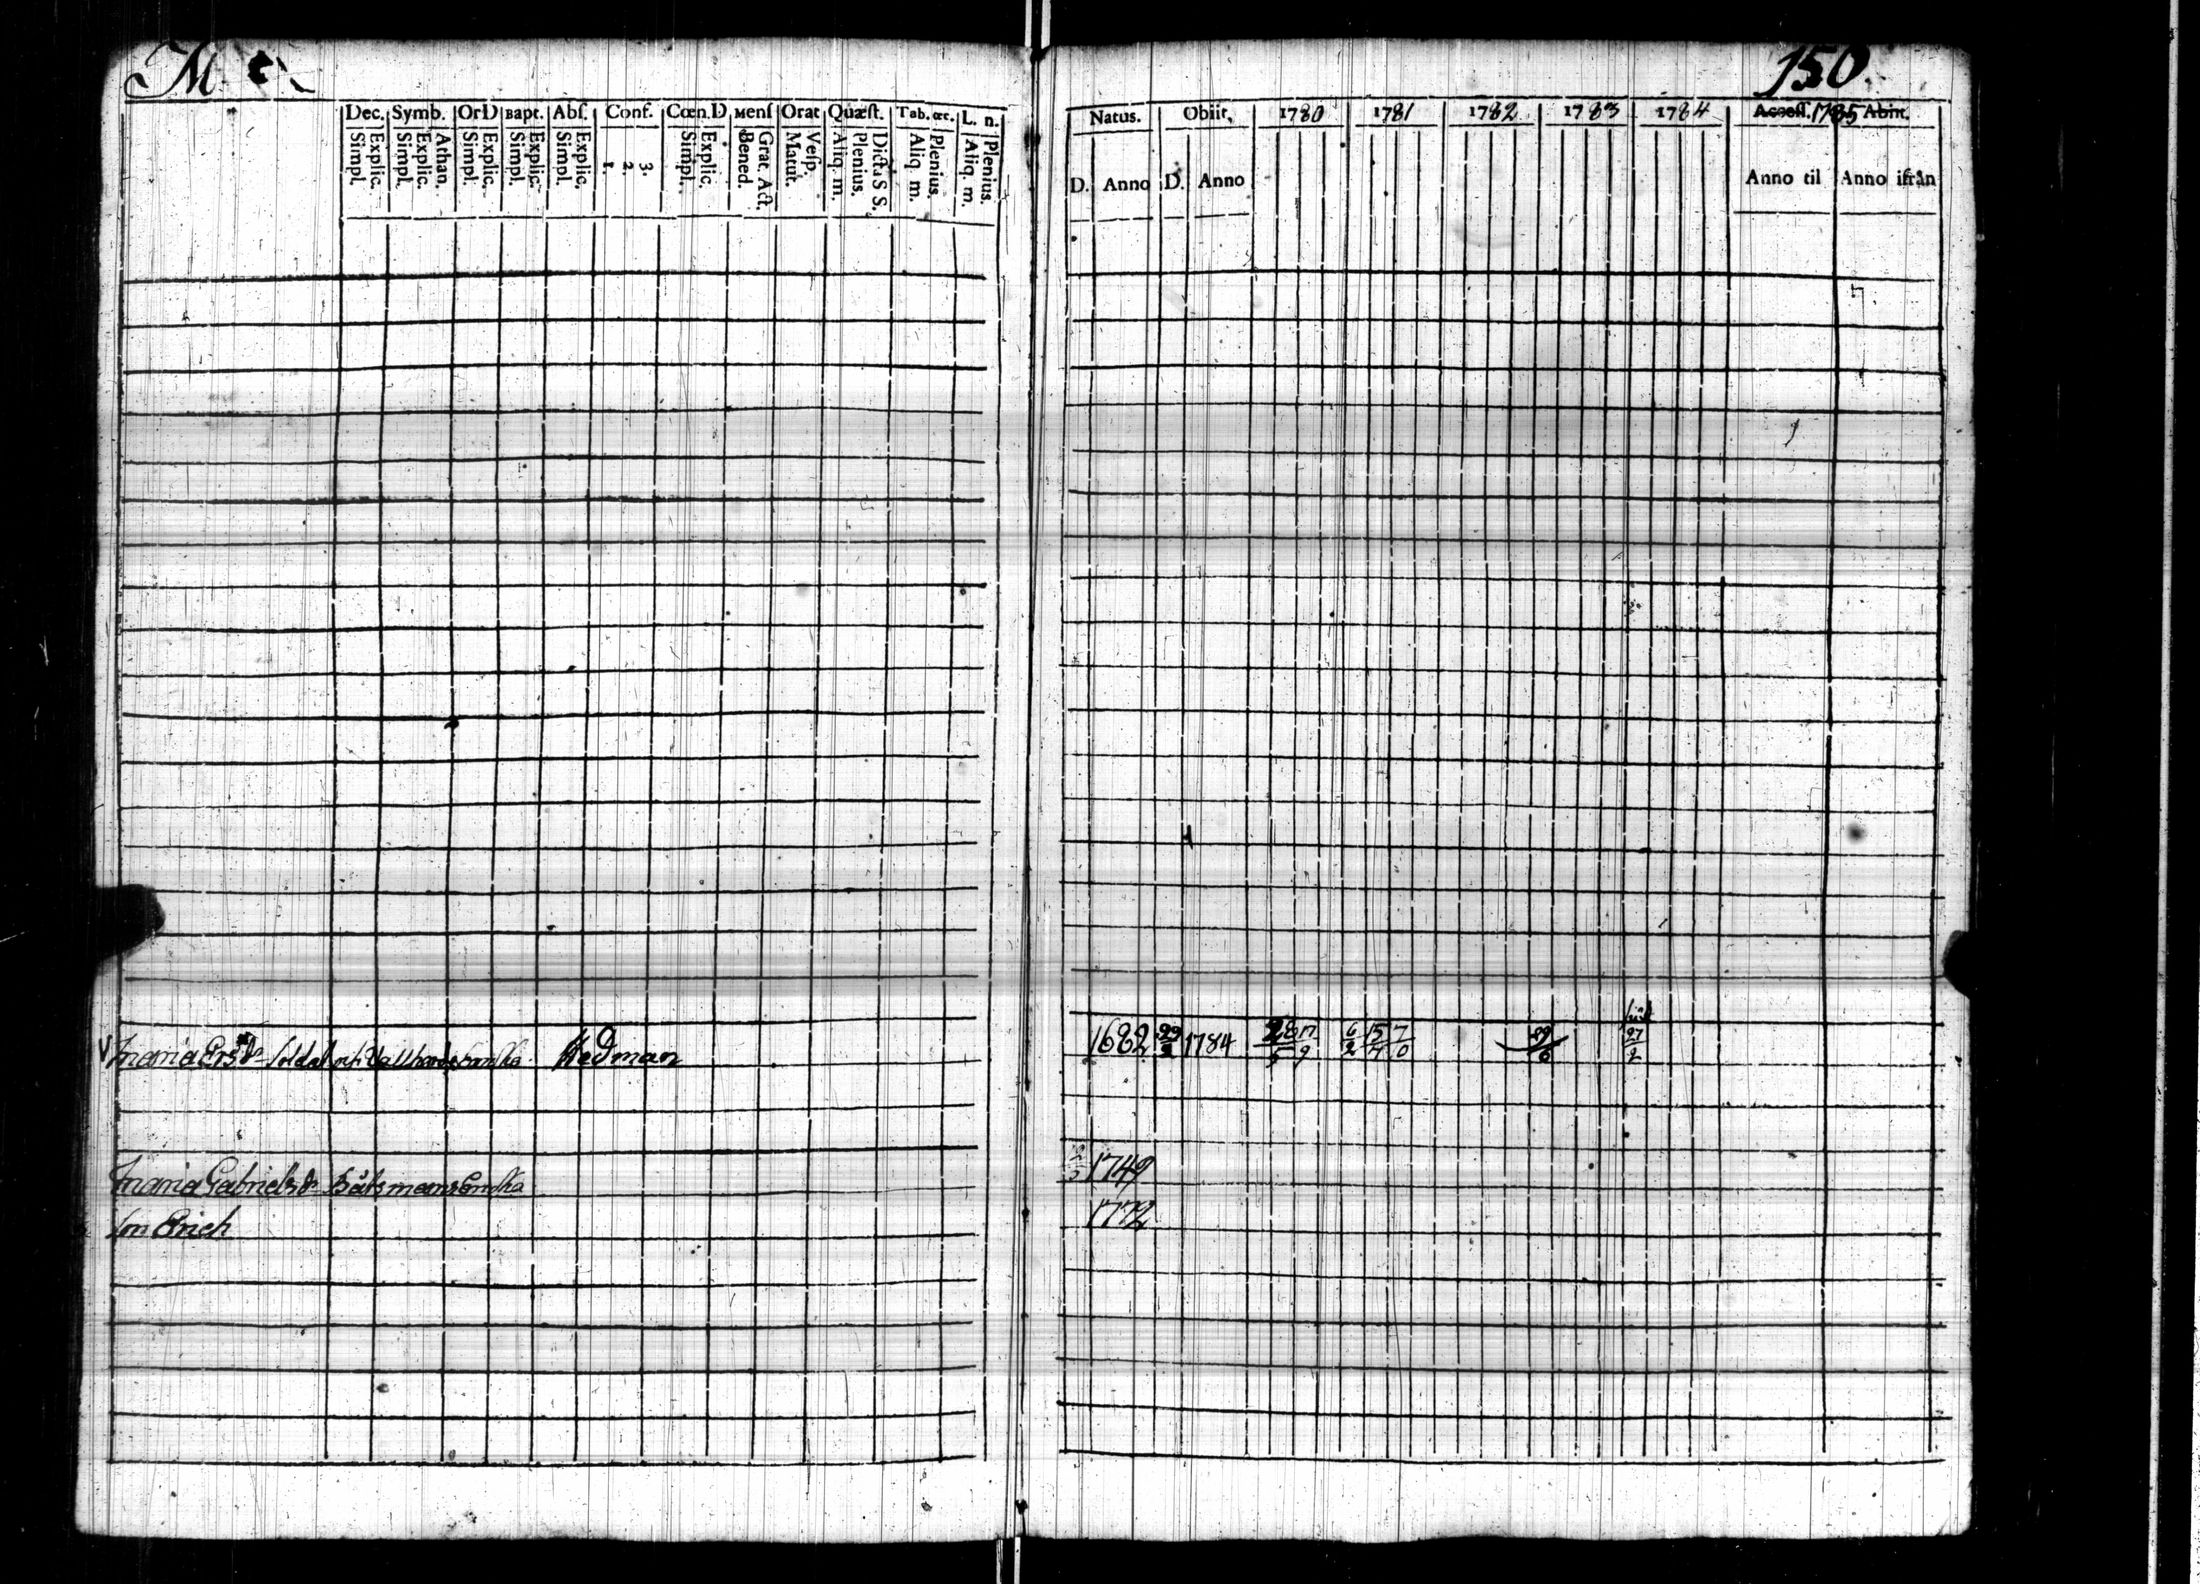 M.
150.
Dec. Symb. OrD Bapt. Abſ. Conf. Cœn.D Menſ Orat Quæſt. Tab. œc. L. n.
Simpl. Explic. Simpl. Explic. Athan. Simpl. Explic. Simpl. Explic. Simpl. Explic. 1. 2. 3. Simpl. Explic. Bened. Grat. Act. Matut. Veſp. Aliq. m. Plenius. Dict. S S. Aliq. m. Plenius. Aliq. m. Plenius.
Natus. Obiit. 1780 1781 1782 1783 1784 Acceſſ. 1785 Abiit.
D. Anno D. Anno Anno til Anno ifrån
Maria Ersd:r Soldat Enkka Hedman 1682 29/2 1784 17/9 6/2 15/4 7/0 29/6 27/2
Maria Gabrielsd:r Båtsmans Enkka 1749
Son Erich 1772